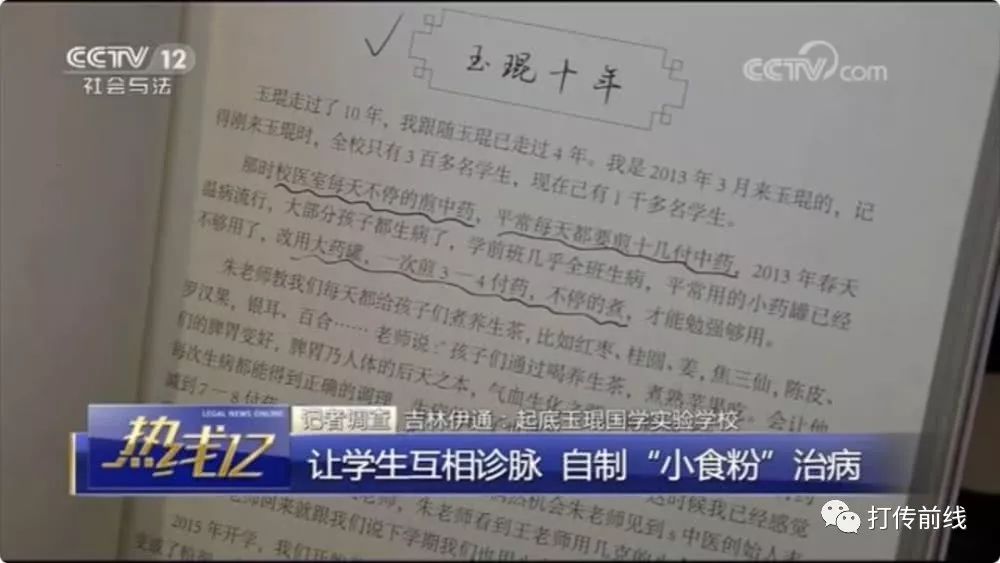 CCTV 12
社会与法
CCTV.com
玉琨十年
玉琨走过了10年，我跟随玉琨已走过4年。我是2013年3月来玉琨的，记
得刚来玉琨时，全校只有3百多名学生，现在已有1千多名学生。
那时校医室每天不停的煎中药，平常每天都要煎十几付中药，2013年春天
温病流行，大部分孩子都生病了，学前班几乎全班生病，平常用的小药罐已经
不够用了，改用大药罐，一次煎3—4付药，不停的煮，才能勉强够用。
朱老师教我们每天都给孩子们煮养生茶，比如红枣、桂圆、姜，焦三仙，陈皮、
罗汉果，银耳、百合……老师说：“孩子们通过喝养生茶，煮熟苹果吃，会让他
们的脾胃变好，脾胃乃人体的后天之本，气血生化之
每次生病都能得到正确的调理
减到7—8付药
LEGAL NEWS ONLINE
热线12
记者调查
吉林伊通：起底玉琨国学实验学校
让学生互相诊脉 自制“小食粉”治病
这时候我已经感觉
朱老师看到王老师用几克的
机会朱老师见到s中医创始人李
老师回来就跟我们说下学期我们也用
2015年开学，我们
打传前线